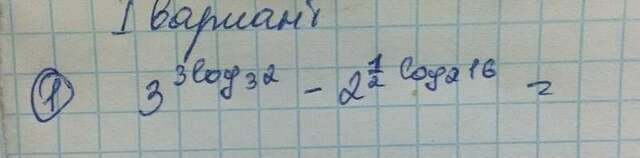 I вариант
① 3^{3log_3 2} - 2^{\frac{1}{2} log_2 16} =